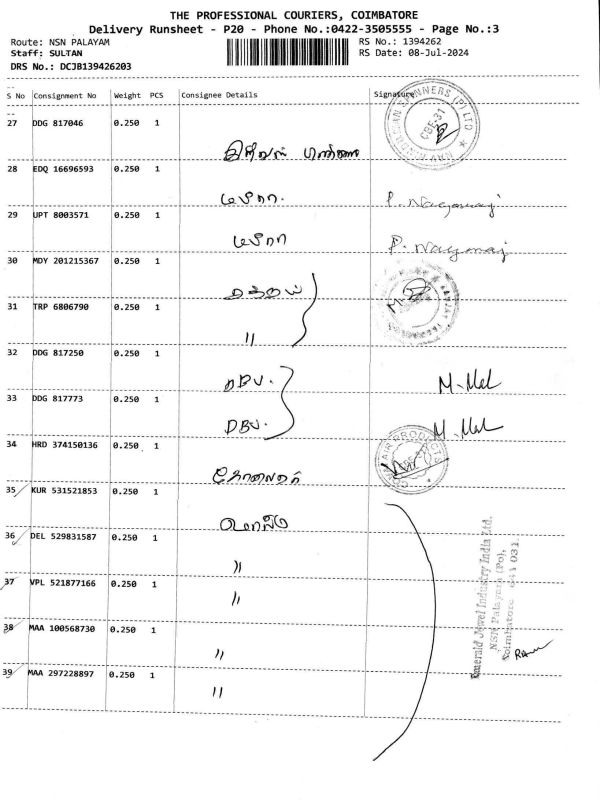 THE PROFESSIONAL COURIERS, COIMBATORE
Delivery Runsheet - P20 - Phone No.:0422-3505555 - Page No.:3
Route: NSN PALAYAM
RS No.: 1394262
Staff: SULTAN
RS Date: 08-Jul-2024
DRS No.: DCJB139426203
S No Consignment No Weight PCS Consignee Details Signature
27 DDG 817046 0.250 1
28 EDQ 16696593 0.250 1
P. Nagaraj
29 UPT 8003571 0.250 1
P. Nagaraj
30 MDY 201215367 0.250 1
31 TRP 6806790 0.250 1
"
32 DDG 817250 0.250 1
DBV.
33 DDG 817773 0.250 1
DBV.
34 HRD 374150136 0.250 1
AIR PRODUCTS
35 KUR 531521853 0.250 1
36 DEL 529831587 0.250 1
"
37 VPL 521877166 0.250 1
"
38 MAA 100568730 0.250 1
"
39 MAA 297228897 0.250 1
"
Emerald Jewel Industry India Ltd.
NSN Palayam (Po),
Coimbatore 641 031.
Ram